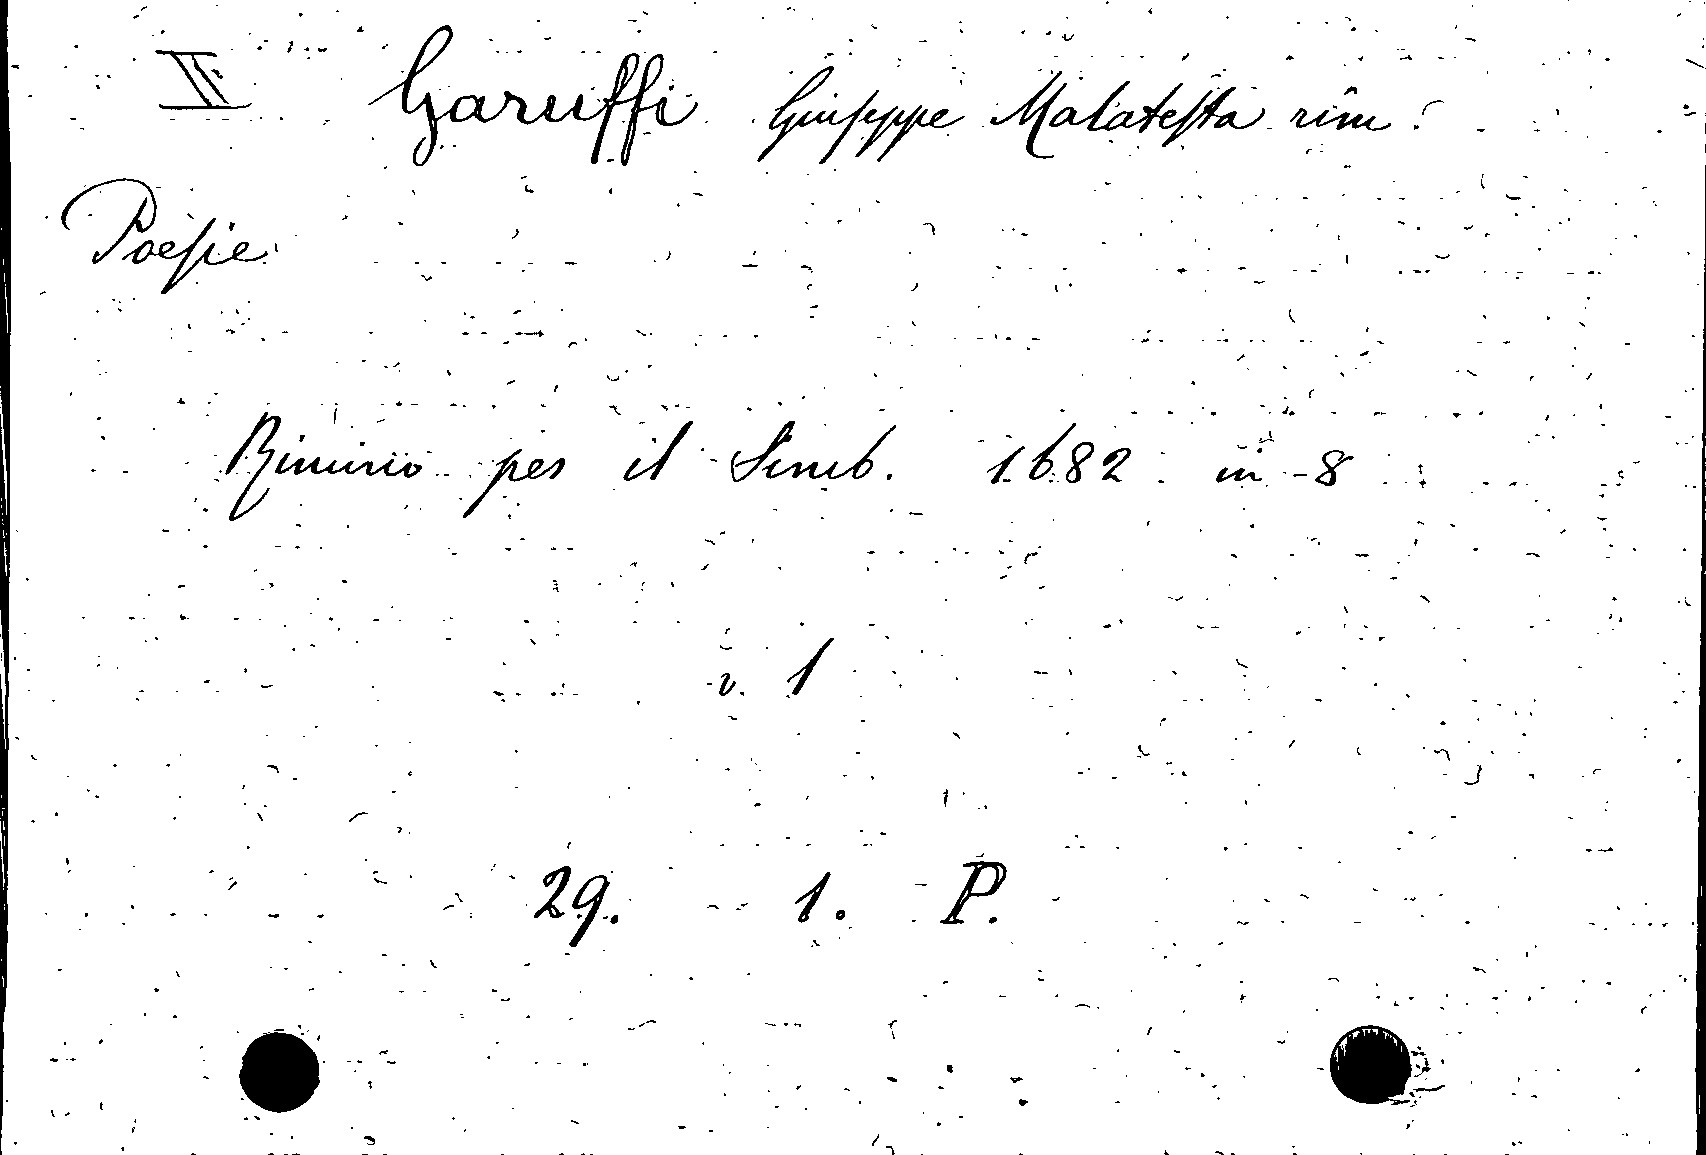 Garuffi Giuseppe Malatesta rim:
Poesie
Rimino per il Simb. 1682 in-8
v. 1
29. 1. P.